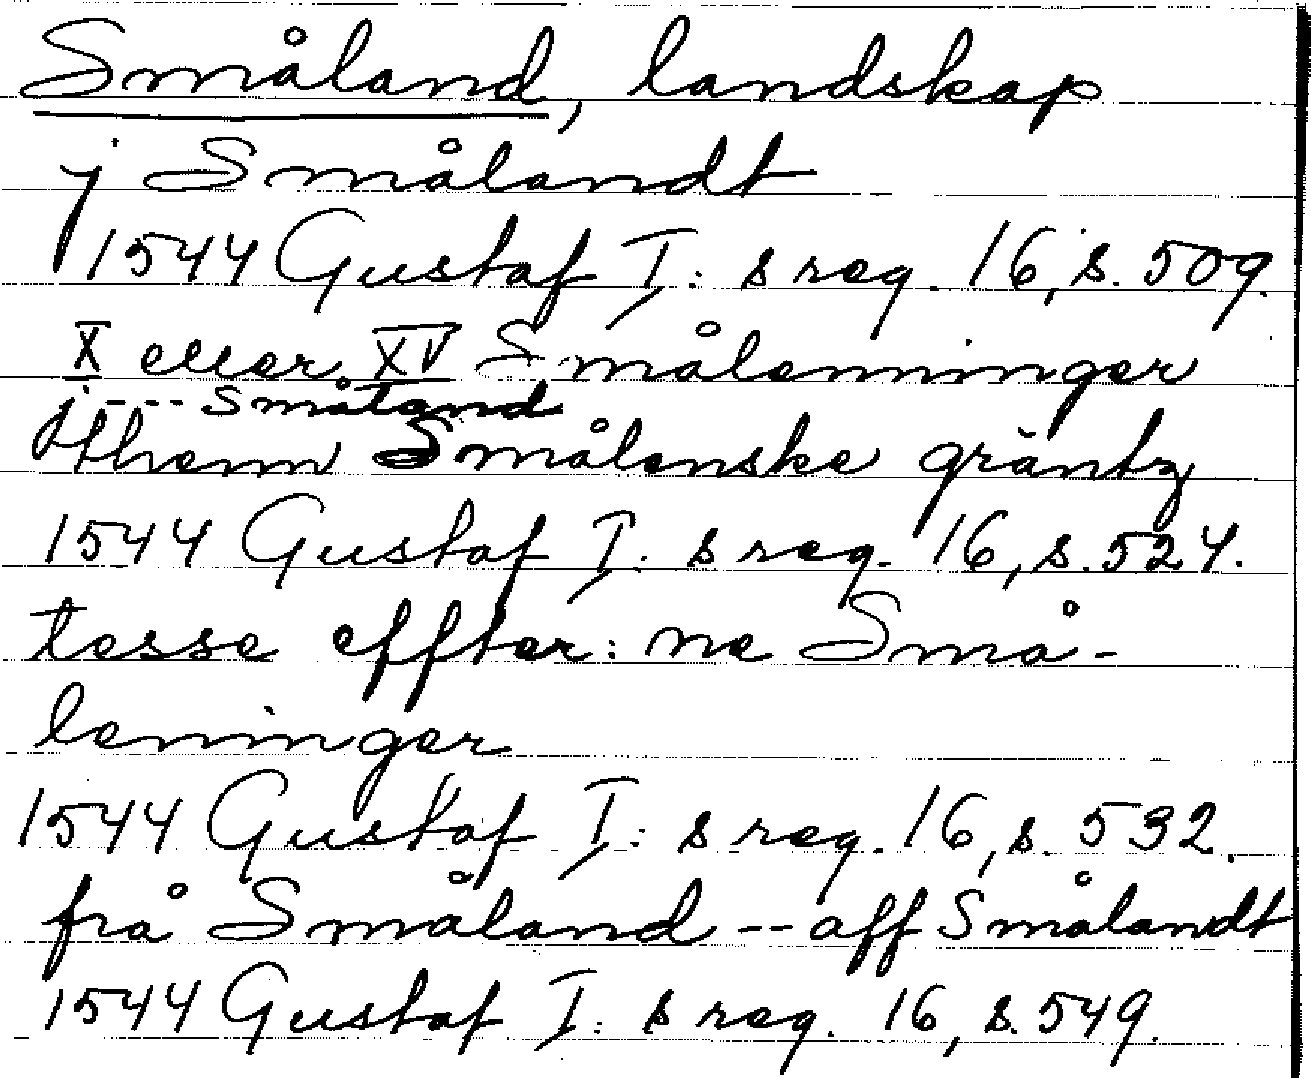 Småland, landskap
j Smålandt
1544 Gustaf I: s reg. 16, s. 509.
X eller XV Smålenninger
j --- Småland
ithenn Smålenske gräntz
1544 Gustaf I: s reg. 16, s. 524.
tesse effter: ne Små-
leninger
1544 Gustaf I: s reg. 16, s. 532.
frå Småland -- aff Smålandt
1544 Gustaf I: s reg. 16, s. 549.